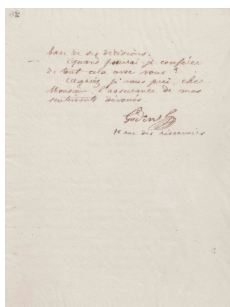 base de ses décisions.
Quand pourrai-je conférer
de tout cela avec vous ?
Agréez, je vous prie, cher
Monsieur l'assurance de mes
sentiments dévoués
Godin
rue des réservoirs